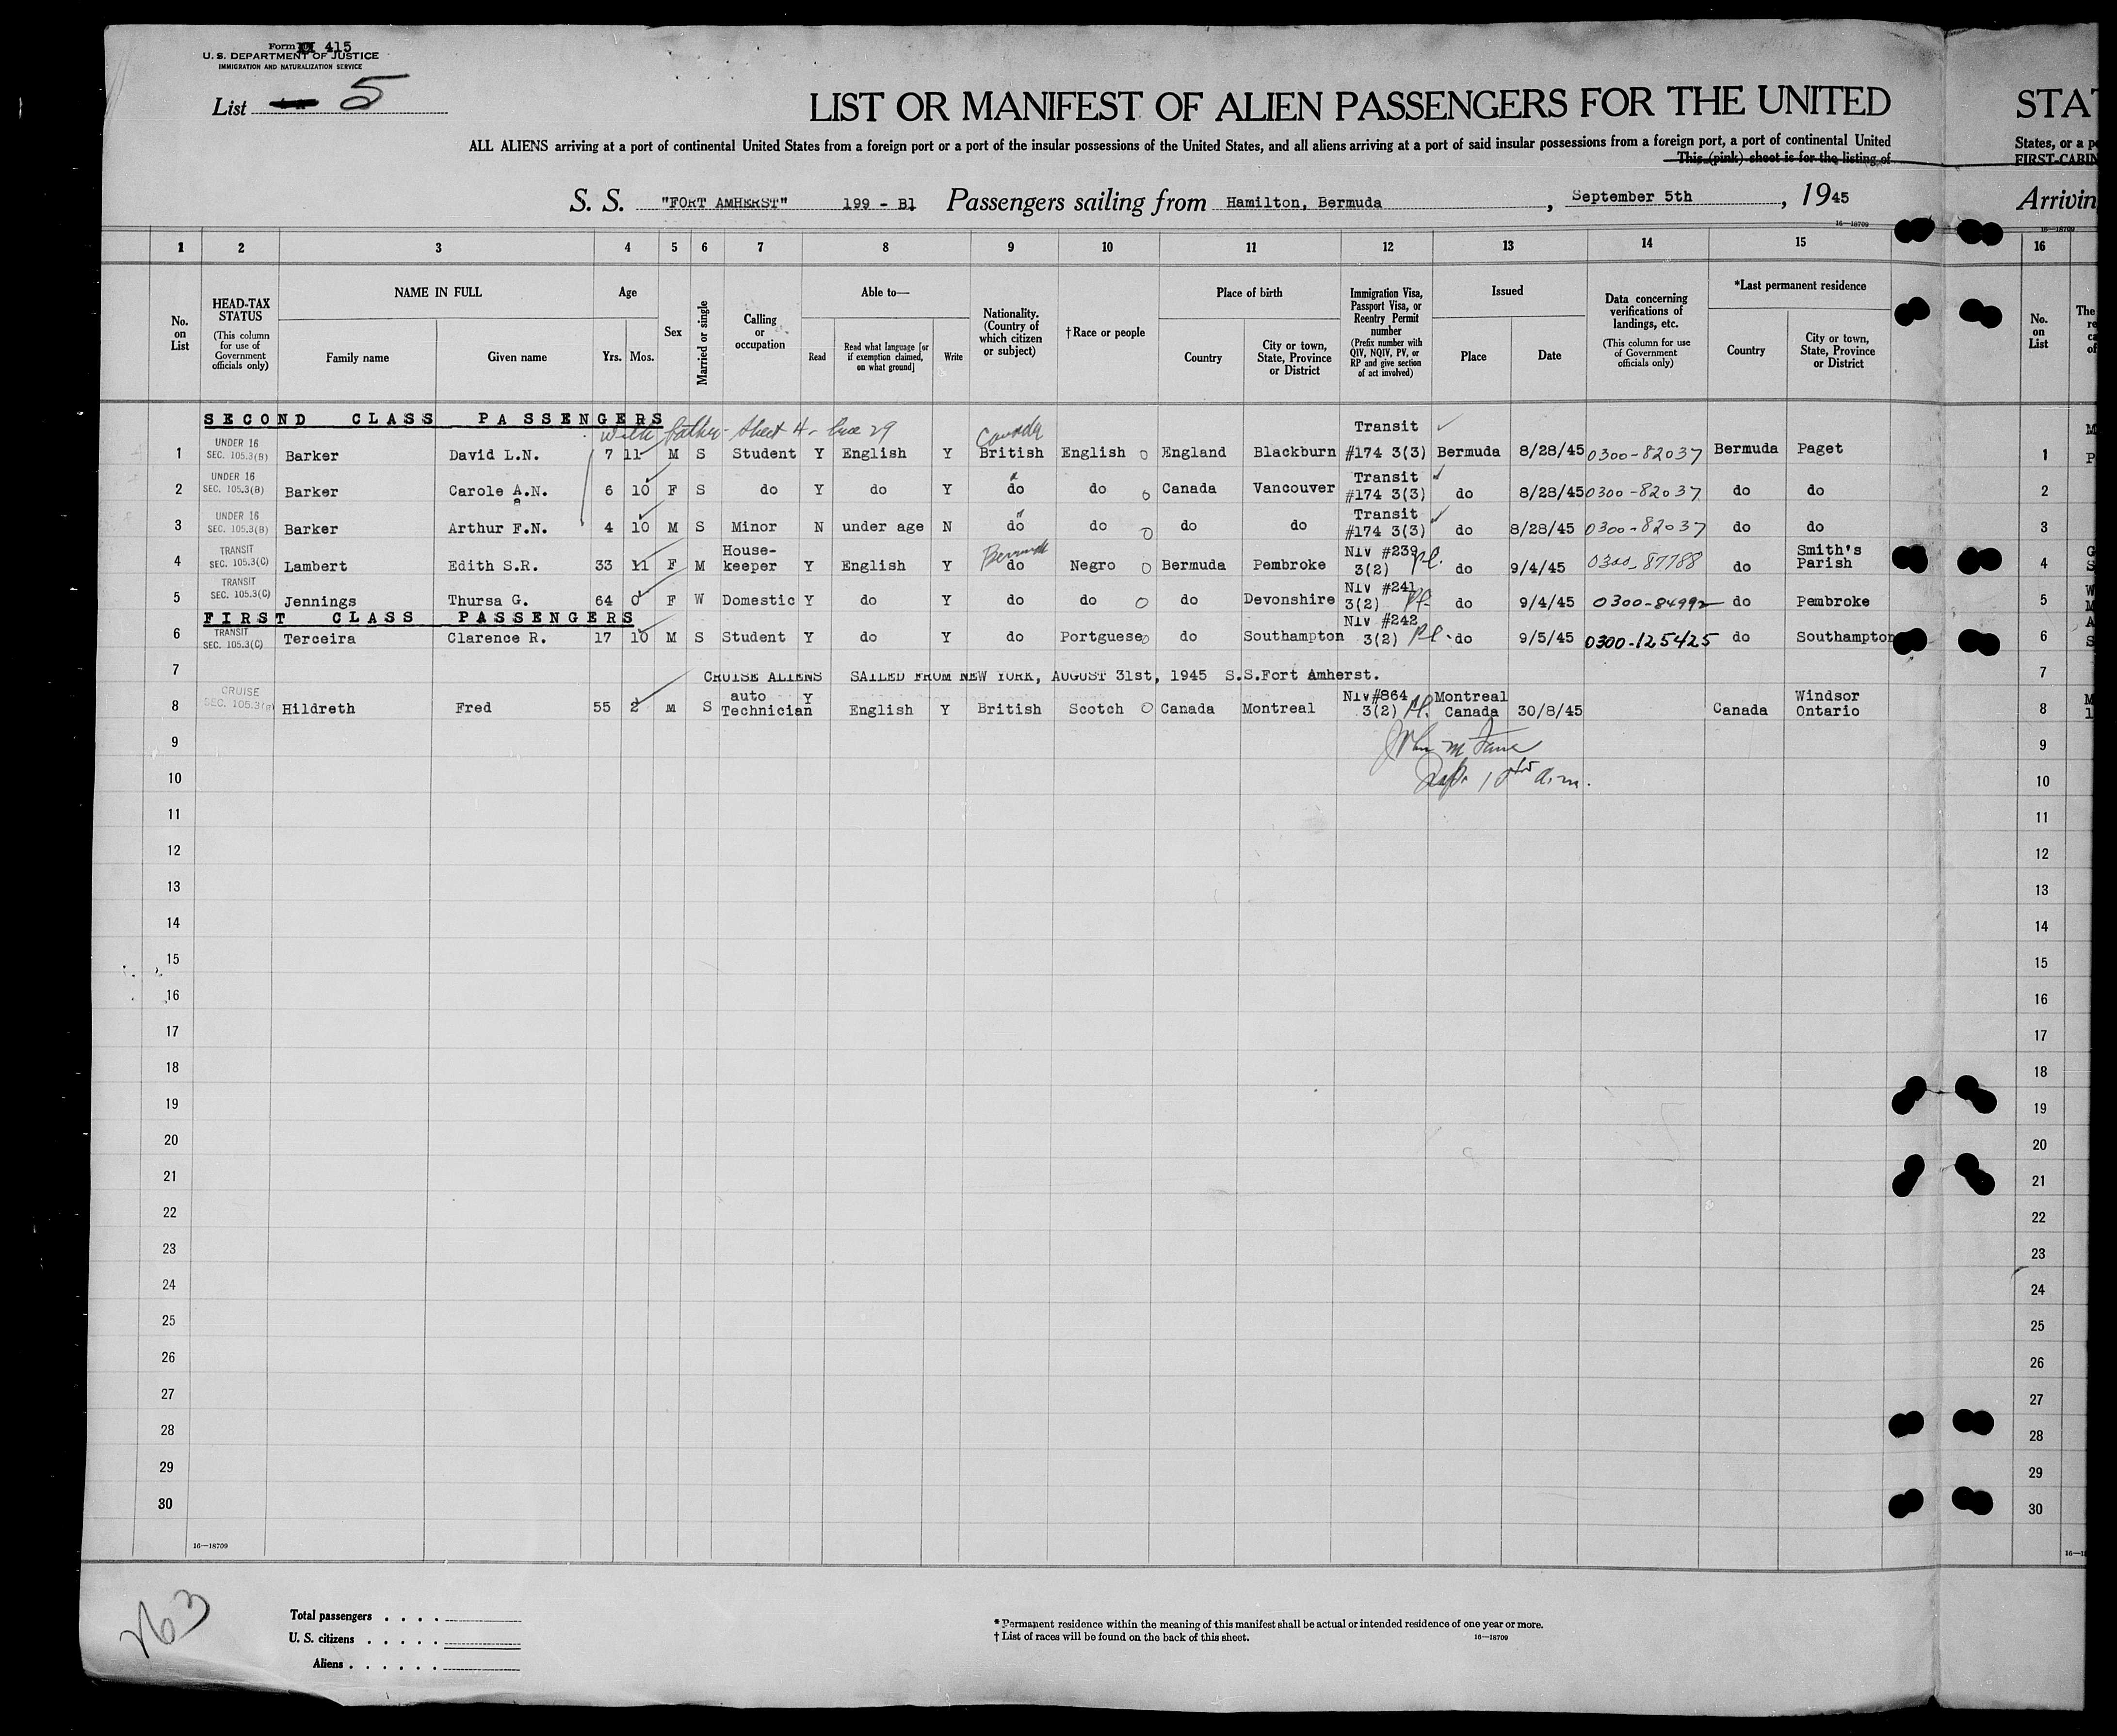 Form 415
U. S. DEPARTMENT OF JUSTICE
IMMIGRATION AND NATURALIZATION SERVICE
List 5
LIST OR MANIFEST OF ALIEN PASSENGERS FOR THE UNITED STAT
ALL ALIENS arriving at a port of continental United States from a foreign port or a port of the insular possessions of the United States, and all aliens arriving at a port of said insular possessions from a foreign port, a port of continental United States, or a p
This (pink) sheet is for the listing of FIRST-CABIN
S. S. "FORT AMHERST" 199 - B1 Passengers sailing from Hamilton, Bermuda, September 5th, 1945 Arrivin
16—18709 16—18709
1 2 3 4 5 6 7 8 9 10 11 12 13 14 15 16
No. on List
HEAD-TAX STATUS
(This column for use of Government officials only)
NAME IN FULL
Family name Given name
Age
Yrs. Mos.
Sex
Married or single
Calling or occupation
Able to—
Read
Read what language [or if exemption claimed, on what ground]
Write
Nationality. (Country of which citizen or subject)
†Race or people
Place of birth
Country
City or town, State, Province or District
Immigration Visa, Passport Visa, or Reentry Permit number
(Prefix number with QIV, NQIV, PV, or RP and give section of act involved)
Issued
Place Date
Data concerning verifications of landings, etc.
(This column for use of Government officials only)
*Last permanent residence
Country
City or town, State, Province or District
No. on List
The
SECOND CLASS PASSENGERS
with father - sheet 4 - line 29 Canada
Transit
1 UNDER 16 SEC. 105.3(B) Barker David L.N. 7 11 M S Student Y English Y British English O England Blackburn #174 3(3) Bermuda 8/28/45 0300-82037 Bermuda Paget 1
Transit
2 UNDER 16 SEC. 105.3(B) Barker Carole A.N. 6 10 F S do Y do Y do do O Canada Vancouver #174 3(3) do 8/28/45 0300-82037 do do 2
Transit
3 UNDER 16 SEC. 105.3(B) Barker Arthur F.N. 4 10 M S Minor N under age N do do O do do #174 3(3) do 8/28/45 0300-82037 do do 3
House- Bermuda NIV #239 Smith's
4 TRANSIT SEC. 105.3(C) Lambert Edith S.R. 33 11 F M keeper Y English Y do Negro O Bermuda Pembroke 3(2) do 9/4/45 0300-87788 do Parish 4
NIV #241
5 TRANSIT SEC. 105.3(C) Jennings Thursa G. 64 0 F W Domestic Y do Y do do O do Devonshire 3(2) do 9/4/45 0300-84992 do Pembroke 5
FIRST CLASS PASSENGERS
NIV #242
6 TRANSIT SEC. 105.3(C) Terceira Clarence R. 17 10 M S Student Y do Y do Portguese O do Southampton 3(2) do 9/5/45 0300-125425 do Southampton 6
7 CRUISE ALIENS SAILED FROM NEW YORK, AUGUST 31st, 1945 S.S.Fort Amherst. 7
auto NIV #864 Montreal Windsor
8 CRUISE SEC. 105.3(B) Hildreth Fred 55 2 M S Technician Y English Y British Scotch O Canada Montreal 3(2) Canada 30/8/45 Canada Ontario 8
9 9
10 10
11 11
12 12
13 13
14 14
15 15
16 16
17 17
18 18
19 19
20 20
21 21
22 22
23 23
24 24
25 25
26 26
27 27
28 28
29 29
30 30
16—18709
Total passengers . . . .
U. S. citizens . . . . .
Aliens . . . . . .
* Permanent residence within the meaning of this manifest shall be actual or intended residence of one year or more.
† List of races will be found on the back of this sheet. 16—18709